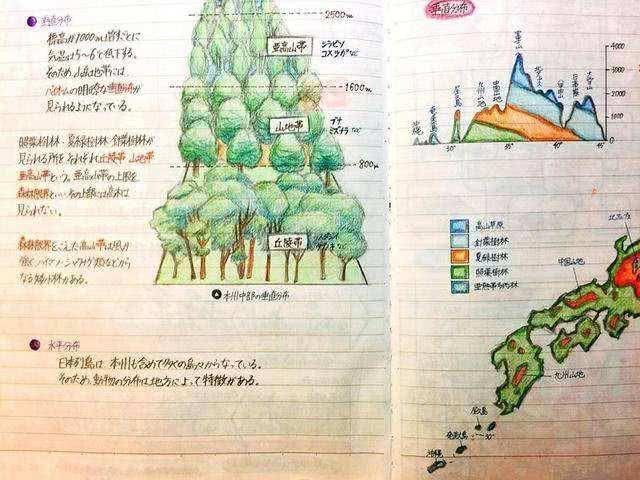 垂直分布
標高が1000m増すごとに
気温は5〜6℃低下する。
そのため、山岳地帯には
バイオームの明確な垂直分布が
見られるようになっている。
照葉樹林・夏緑樹林・針葉樹林が
見られる所をそれぞれ丘陵帯 山地帯
亜高山帯という。亜高山帯の上限を
森林限界といい、その上部には高木は
見られない。
森林限界をこえた高山帯は風が
強く、ハイマツ・シャクナゲ類などから
なる低木林がある。
2500m
亜高山帯
シラビソ
コメツガなど
1600m
山地帯
ブナ
ミズナラなど
800m
丘陵帯
本州中部の垂直分布
水平分布
日本列島は、本州も含めて多くの島々からなっている。
そのため、動物の分布は地方によって特徴がある。
垂直分布
富士山
八甲田山
大雪山
中国山地
九州山地
屋久島
奄美大島
沖縄
4000
3000
2000
1000
0
30°
35°
40°
45°
高山草原
針葉樹林
夏緑樹林
照葉樹林
亜熱帯多雨林
中国山地
九州山地
屋久島
奄美大島
30°
沖縄